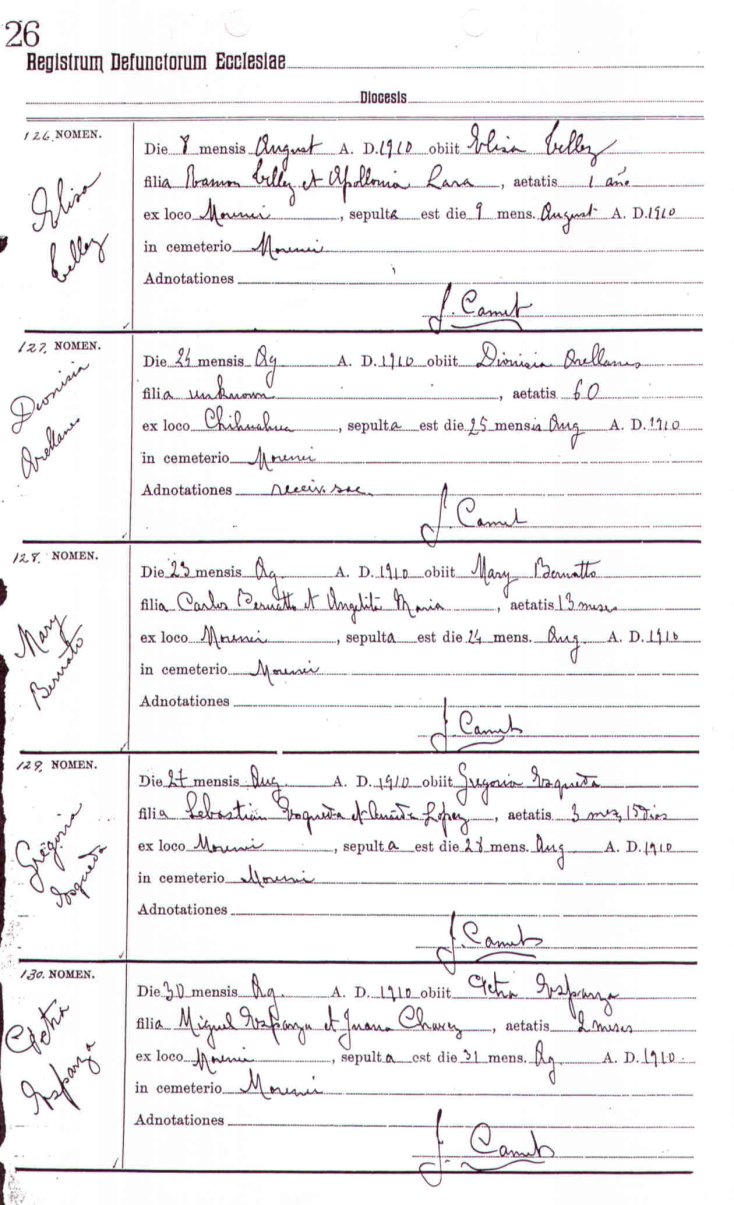 26
Registrum Defunctorum Ecclesiae
Diocesis
126. NOMEN.
Elisa
Tellez
Die 8 mensis August A. D. 1910 obiit Elisa Tellez
filia Ramon Tellez et Apollonia Lara, aetatis 1 año
ex loco Morenci, sepulta est die 9 mens. August A. D. 1910
in cemeterio Morenci
Adnotationes
J. Camet
127. NOMEN.
Dionisia
Arellanes
Die 24 mensis Ag A. D. 1910 obiit Dionisia Arellanes
filia unknown, aetatis 60
ex loco Chihuahua, sepulta est die 25 mensis Aug A. D. 1910
in cemeterio Morenci
Adnotationes receiv. sac.
J. Camet
128. NOMEN.
Mary
Bernato
Die 23 mensis Ag. A. D. 1910 obiit Mary Bernatto
filia Carlos Bernatto et Angelita Maria, aetatis 13 meses
ex loco Morenci, sepulta est die 24 mens. Aug A. D. 1910
in cemeterio Morenci
Adnotationes
J. Camet
129. NOMEN.
Gregoria
Esqueda
Die 27 mensis Aug A. D. 1910 obiit Gregoria Esqueda
filia Sebastian Esqueda et Lopez, aetatis 3 mez, 15 dias
ex loco Morenci, sepulta est die 28 mens. Aug A. D. 1910
in cemeterio Morenci
Adnotationes
J. Camet
130. NOMEN.
Petra
Esparza
Die 30 mensis Ag. A. D. 1910 obiit Petra Esparza
filia Miguel Esparza et Juana Chavez, aetatis 2 meses
ex loco Morenci, sepulta est die 31 mens. Ag A. D. 1910.
in cemeterio Morenci
Adnotationes
J. Camet